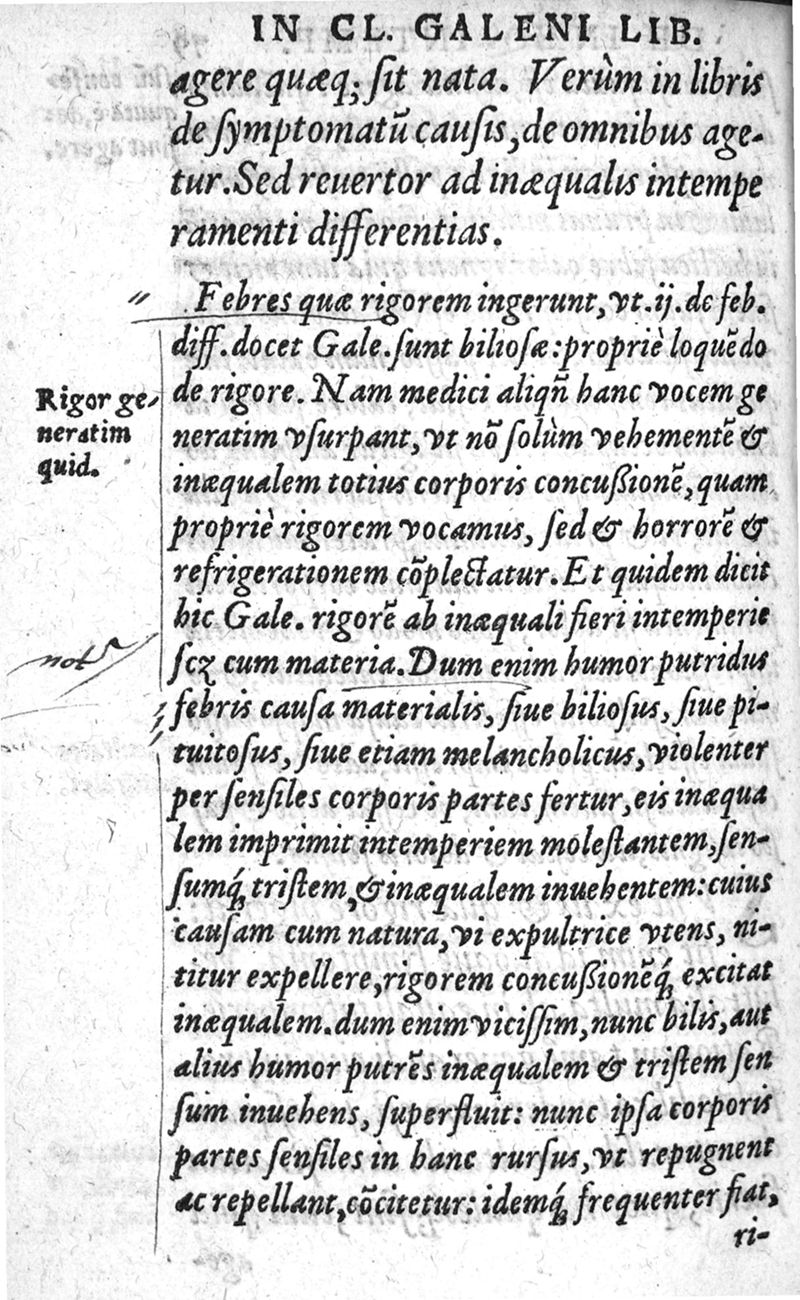 IN CL. GALENI LIB.
agere quæq; sit nata. Verùm in libris
de symptomatū causis, de omnibus age-
tur. Sed reuertor ad inæqualis intempe
ramenti differentias.
Febres quæ rigorem ingerunt, vt. ij. de feb.
diff. docet Gale. sunt biliosæ: propriè loquẽdo
de rigore. Nam medici aliqñ hanc vocem ge
neratim vsurpant, vt nõ solùm vehementẽ &
inæqualem totius corporis concußionẽ, quam
propriè rigorem vocamus, sed & horrorẽ &
refrigerationem cõplectatur. Et quidem dicit
hic Gale. rigorẽ ab inæquali fieri intemperie
scz cum materia. Dum enim humor putridus
febris causa materialis, siue biliosus, siue pi-
tuitosus, siue etiam melancholicus, violenter
per sensiles corporis partes fertur, eis inæqua
lem imprimit intemperiem molestantem, sen-
sumq́; tristem, & inæqualem inuehentem: cuius
causam cum natura, vi expultrice vtens, ni-
titur expellere, rigorem concußionẽq́; excitat
inæqualem. dum enim vicissim, nunc bilis, aut
alius humor putrẽs inæqualem & tristem sen
sum inuehens, superfluit: nunc ipsa corporis
partes sensiles in hanc rursus, vt repugnent
ac repellant, cõcitetur: idemq́; frequenter fiat,
ri-
Rigor ge-
neratim
quid.
not